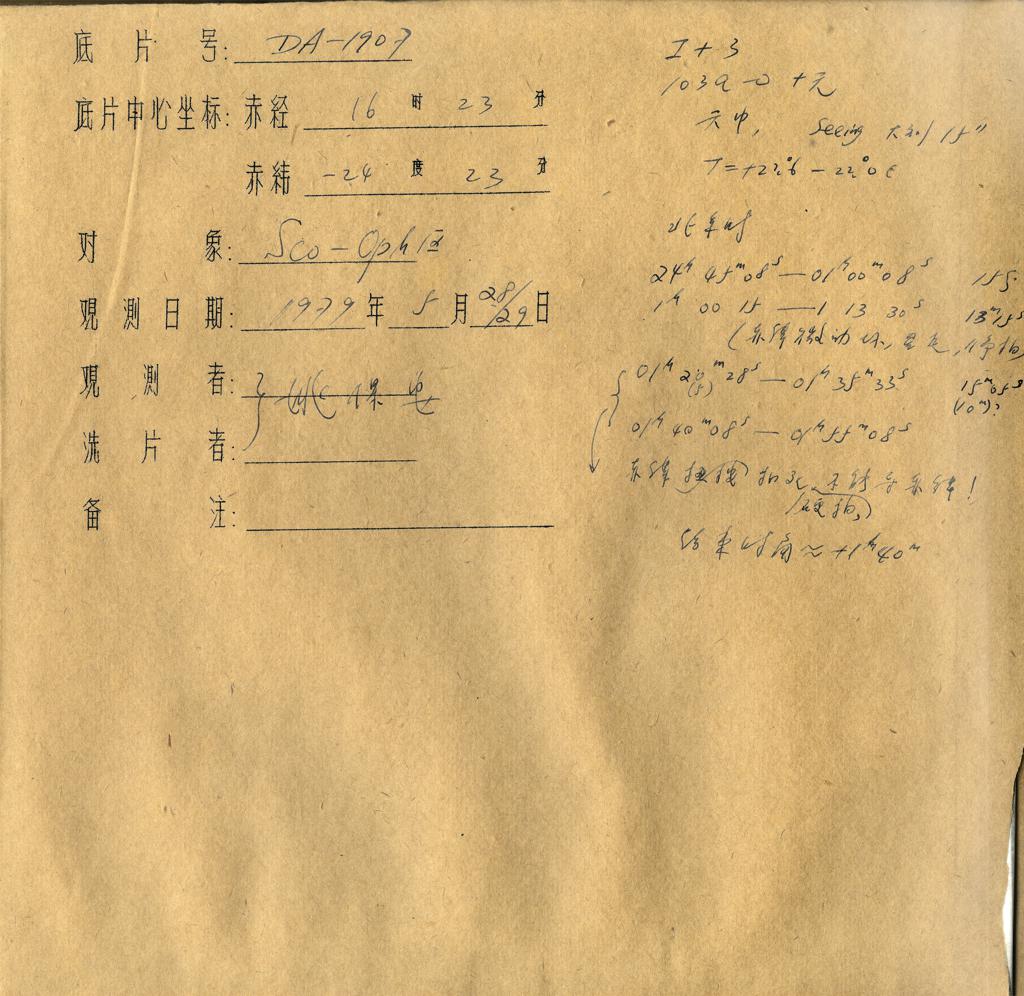 底片号: DA-1907
底片中心坐标: 赤经 16 时 23 分
赤纬 -24 度 23 分
对象: Sco-Oph区
观测日期: 1979年 5月 28/29日
观测者: 姚保安
洗片者:
备注:
I+3
103a-O +无
天中, seeing 大到 15"
T=+22.°6 — 22.°0 C
北京时
24ʰ 45ᵐ 08ˢ — 01ʰ 00ᵐ 08ˢ
1ʰ 00 15 — 1 13 30ˢ 13ᵐ15ˢ
(赤纬微动坏, 停拍
01ʰ 20ᵐ 28ˢ — 01ʰ 35ᵐ 33ˢ 15ᵐ05ˢ
(5) (10ᵐ)?
01ʰ 40ᵐ 08ˢ — 01ʰ 55ᵐ 08ˢ
赤纬 不能导赤纬!
(硬拍)
结束时角≈+1ʰ40ᵐ